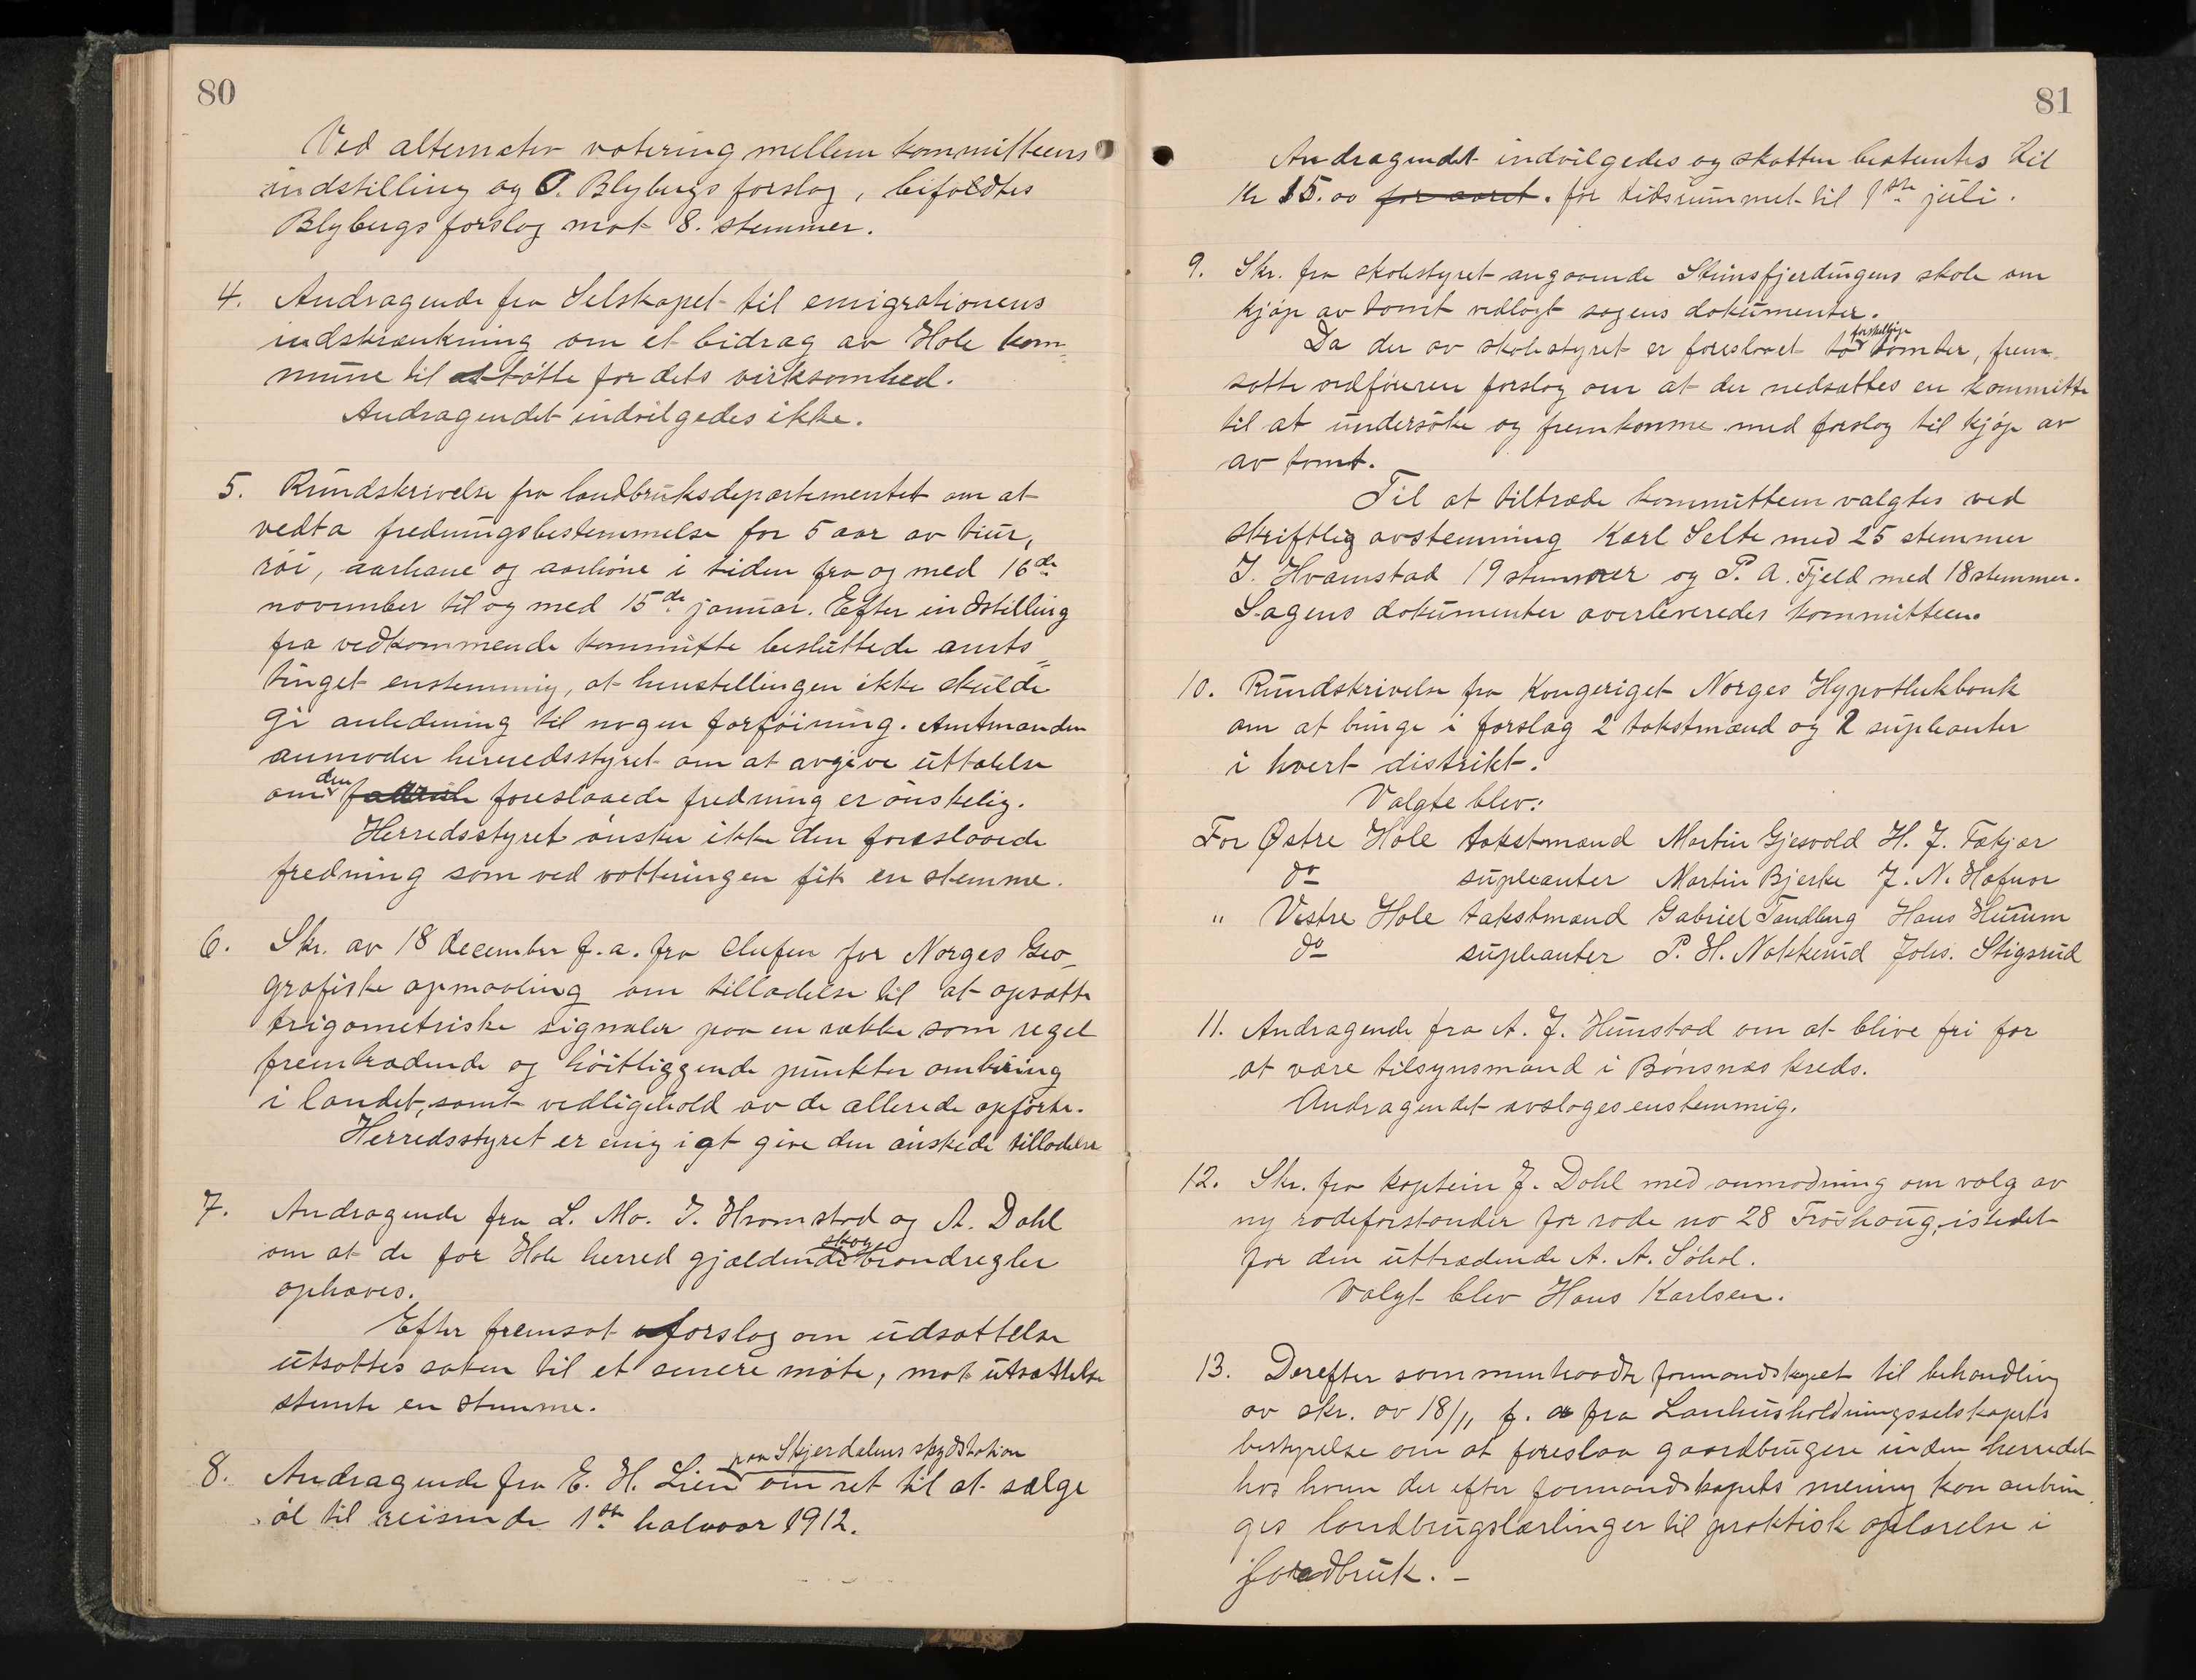 80
Ved alternativ votering mellem kommitteens
indstilling og O. Blybergs forslag, bifaldtes
Blybergs forslag mot 8. stemmer.
4. Andragende fra Selskapet til emigrationens
indskrænkning om et bidrag av Hole kom-
mune til støtte for dets virksomhed.
Andragendet indvilgedes ikke.
5. Rundskrivelse fra landbruksdepartementet om at
vedta fredningsbestemmelse for 5 aar av tiur,
röi, aarhane og aarhöne i tiden fra og med 16de
november til og med 15de januar. Efter indstilling
fra vedkommende kommitte besluttede amts=
tinget enstemmig, at henstillingen ikke skulde
gi anledning til nogen forföining. Amtmanden
anmoder herredsstyret om at avgive uttalelse
om den foreslaaede fredning er önskelig.
Herredsstyret önsker ikke den foreslaaede
fredning som ved votteringen fik en stemme.
6. Skr. av 18 december f.a. fra chefen for Norges Geo-
grafiske opmaaling om tilladelse til at opsætte
trigometriske signaler paa en række som regel
fremtrædende og höitliggende punkter omkring
i landet, samt vedligehold av de allerede opförte.
Herredsstyret er enig i at give den önskede tilladelse
7. Andragende fra L. Mo. I. Hvamstad og A. Dahl
om at de for Hole herred gjældende skogbrandregler
ophæves.
Efter fremsat forslag om udsættelse
utsattes saken til et senere möte, mot utsættelse
stemte en stemme.
8. Andragende fra E. H. Lien paa Skjerdalens skydsstation om ret til at sælge
öl til reisende 1ste halvaar 1912.
81
Andragendet indvilgedes og skatten bestemtes til
Kr 15.00 for aaret. for tidsrummet til 1ste juli.
9. Skr. fra skolestyret angaaende Steinsfjerdingens skole om
kjöp av tomt vedlagt sagens dokumenter.
Da der av skolestyret er foreslaaet to forskellige tomter, frem-
satte ordföreren forslag om at der nedsættes en kommitte
til at undersöke og fremkomme med forslag til kjöp av
av tomt.
Til at tiltræde kommitteen valgtes ved
skriftlig avstemning Karl Selte med 25 stemmer
I. Hvamstad 19 stemmer og P. A. Fjeld med 18 stemmer.
Sagens dokumenter overleveredes kommitteen.
10. Rundskrivelse fra Kongeriget Norges Hypothekbank
om at bringe i forslag 2 takstmænd og 2 supleanter
i hvert distrikt.
Valgte blev:
For Østre Hole takstmænd Martin Gjesvold H. J. Fækjær
do supleanter Martin Bjerke J. N. Hafnor
" Vestre Hole takstmænd Gabriel Tandberg Hans Hurum
do supleanter P. H. Nakkerud Johs. Stigsrud
11. Andragende fra A. J. Hunstad om at blive fri for
at være tilsynsmand i Bönsnæs kreds.
Andragendet avsloges enstemmig.
12. Skr. fra kaptein J. Dahl med anmodning om valg av
ny rodeforstander for rode no 28 Fröshaug, istedet
for den uttrædende A. A. Söhol.
Valgt blev Hans Karlsen.
13. Derefter sammentraadte formandskapet til behandling
av skr. av 18/11 f. a fra Lanhusholdningsselskapets
bestyrelse om at foreslaa gaardbrugere inden herredet
hos hvem der efter formandskapets mening kan anbrin-
ges landbrugslærlinger til praktisk oplærelse i
jordbruk. –